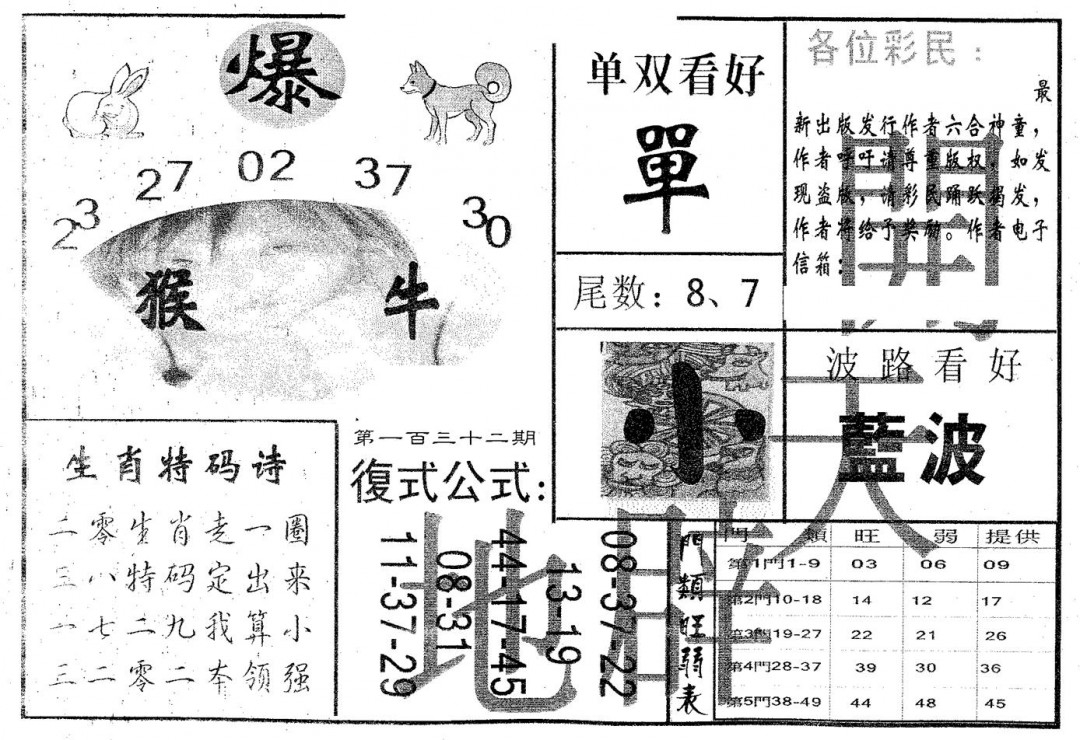 爆
23 27 02 37 30
猴 牛
单双看好
單
尾数：8、7
各位彩民：
最
新出版发行作者六合神童，
作者呼吁请尊重版权，如发
现盗版，请彩民踊跃揭发，
作者将给予奖励。作者电子
信箱：
小
波路看好
藍波
生肖特码诗
二零生肖走一圈
三八特码定出来
一七二九我算小
三二零二本领强
第一百三十二期
復式公式：
11-37-29
08-31
44-17-45
13-19
08-37-22
門類旺弱表
門類 旺 弱 提供
第1門1-9 03 06 09
第2門10-18 14 12 17
第3門19-27 22 21 26
第4門28-37 39 30 36
第5門38-49 44 48 45
開
天
地